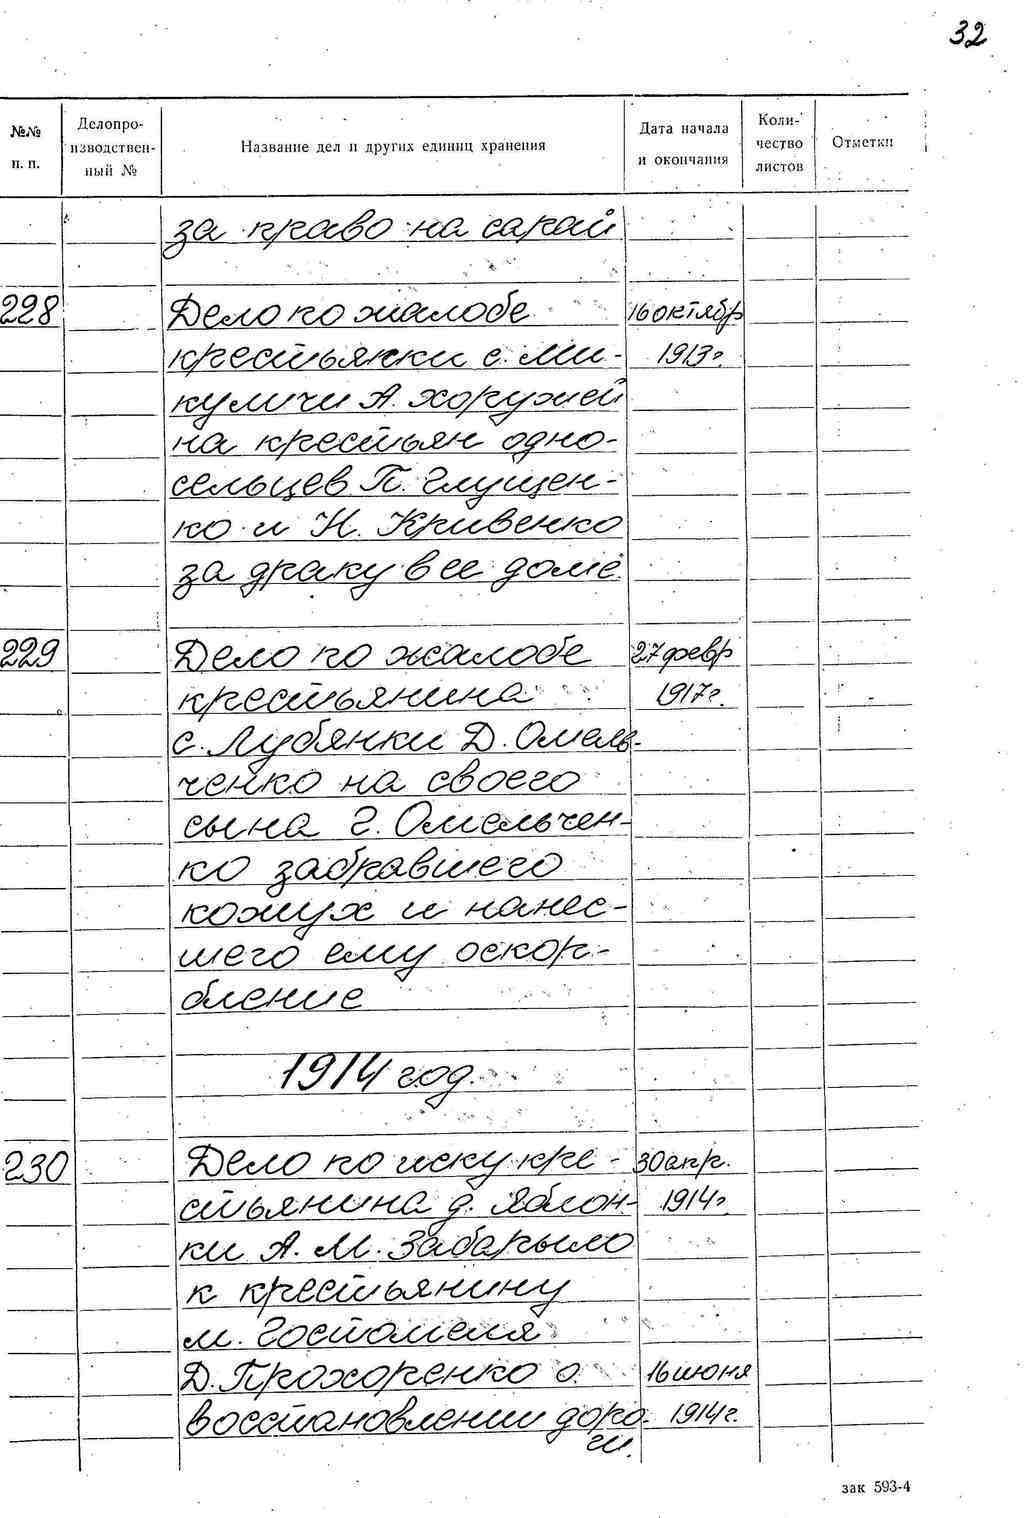 32
№№ п. п.
Делопро-
изводствен-
ный №
Название дел и других единиц хранения
Дата начала
и окончания
Коли-
чество
листов
Отметки
за право на сарай
228 Дело по жалобе 16 октябр
крестьянки с. Ми- 1913 г.
куличи А. Хоружей
на крестьян одно-
сельцев П. Глущен-
ко и Н. Кривенко
за драку в ее доме
229 Дело по жалобе 27 февр
крестьянина 1917 г.
с. Лубянки Д. Омель-
ченко на своего
сына Г. Омельчен-
ко забравшего
кожух и нанес-
шего ему оскор-
бление
1914 год.
230 Дело по иску кре- 30 апр.
стьянина д. Яблон- 1914 г.
ки А. М. Забарыло
к крестьянину
м. Гостомеля
Д. Прохоренко о 16 июня
восстановлении доро- 1914 г.
ги.
зак 593-4